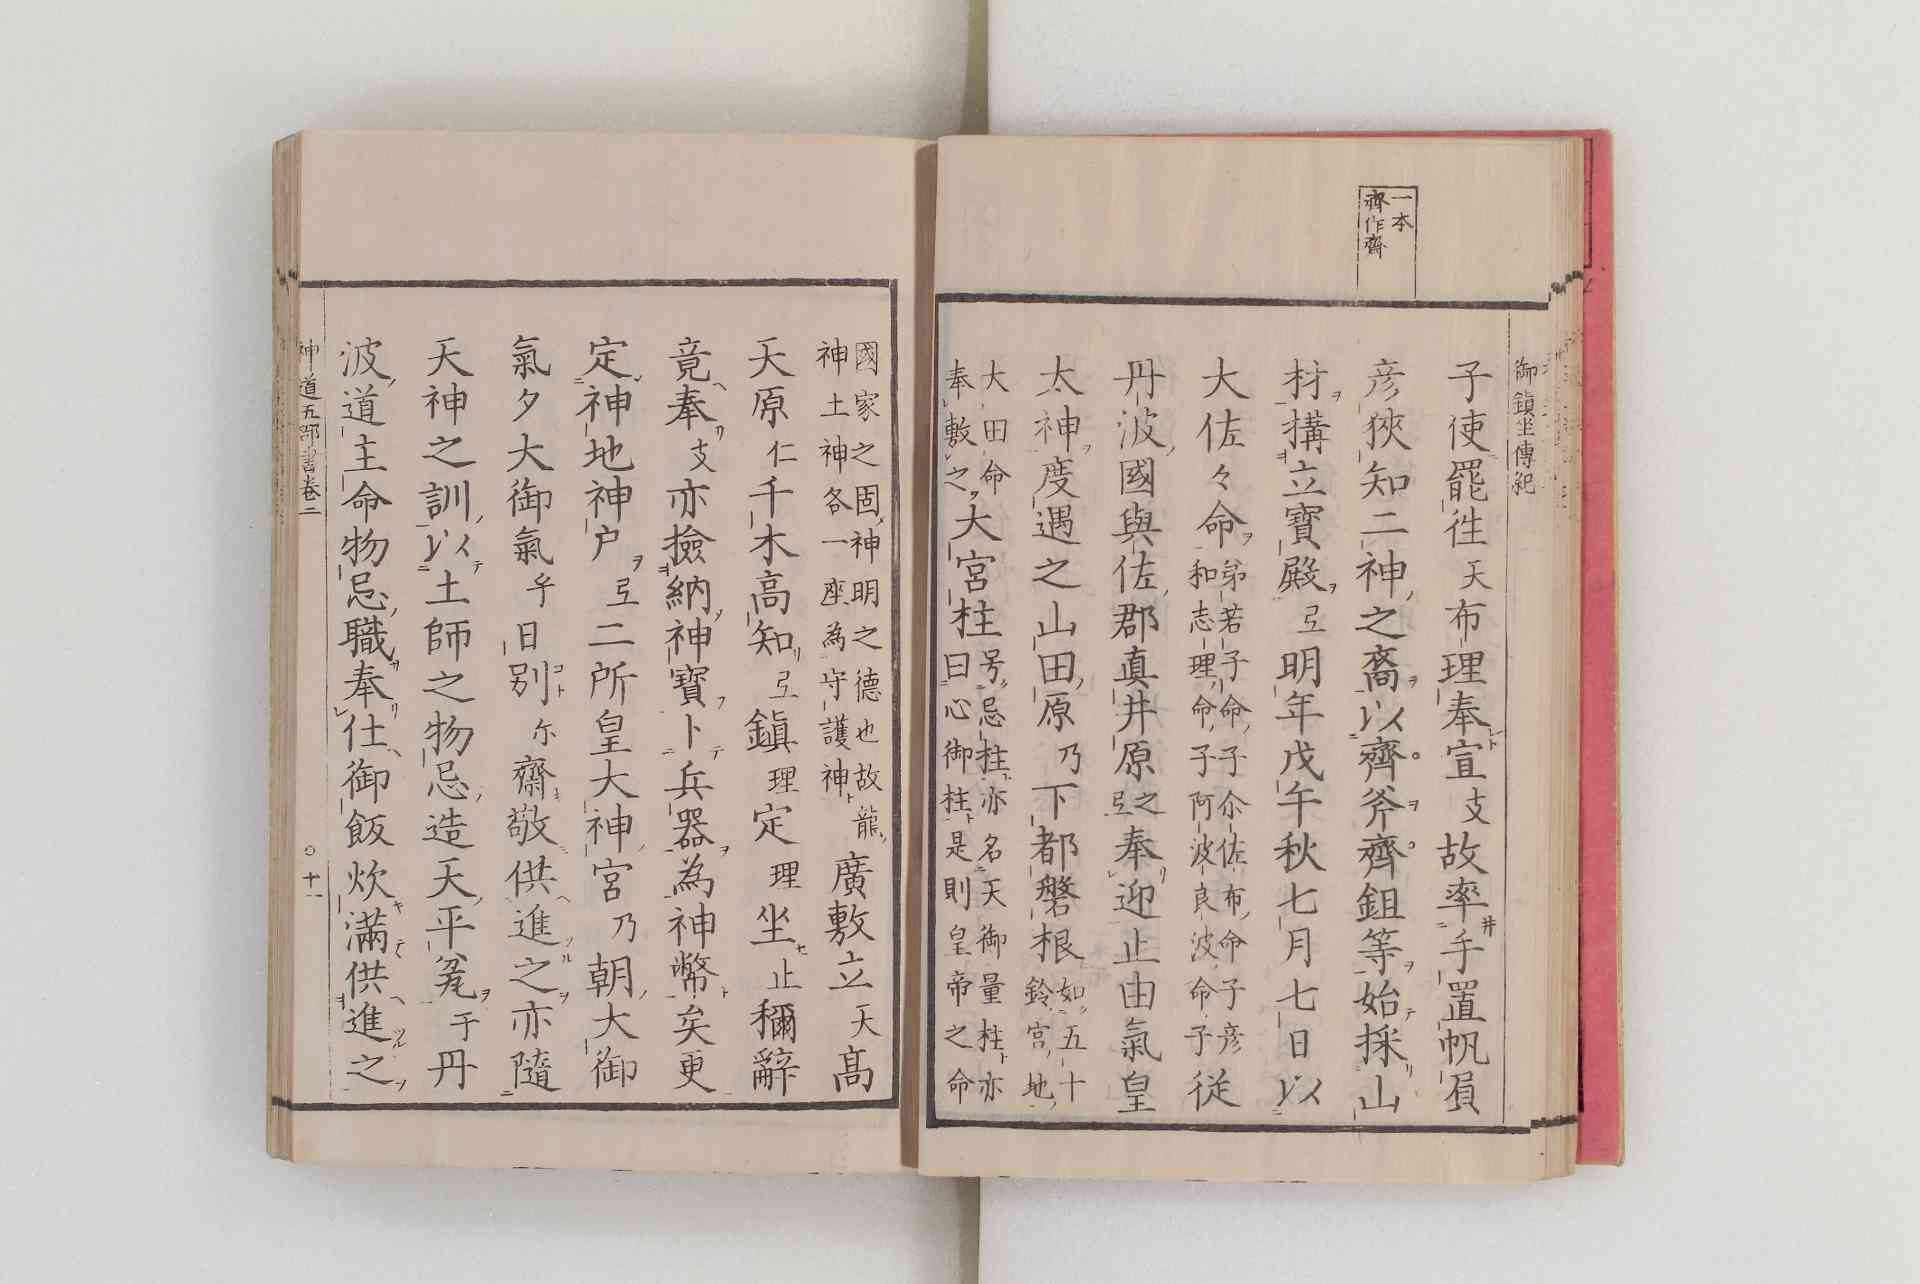 一本
齊作齋
御鎮坐傳紀
子使罷徃天布理奉宣支故率手置帆負
彦狹知二神之裔以齊斧齊鉏等始採山
材搆立寶殿弖明年戊午秋七月七日以
大佐々命弟若子命子佘佐布命子彦
和志理命子阿波良波命子従
丹波國與佐郡真井原之奉迎止由氣皇
弖
太神度遇之山田原乃下都磐根如五十
鈴宮地
大田命
奉敷之大宮柱号忌柱亦名天御量柱亦
曰心御柱是則皇帝之命
國家之固神明之德也故龍
神土神各一座為守護神廣敷立天髙
天原仁千木高知弖鎮理定理坐止稱辭
竟奉支亦撿納神寶卜兵器為神幣矣更
定神地神戸弖二所皇大神宮乃朝大御
氣夕大御氣乎日別尓齋敬供進之亦隨
天神之訓以土師之物忌造天平瓮于丹
波道主命物忌職奉仕御飯炊滿供進之
神道五部書卷二
十一